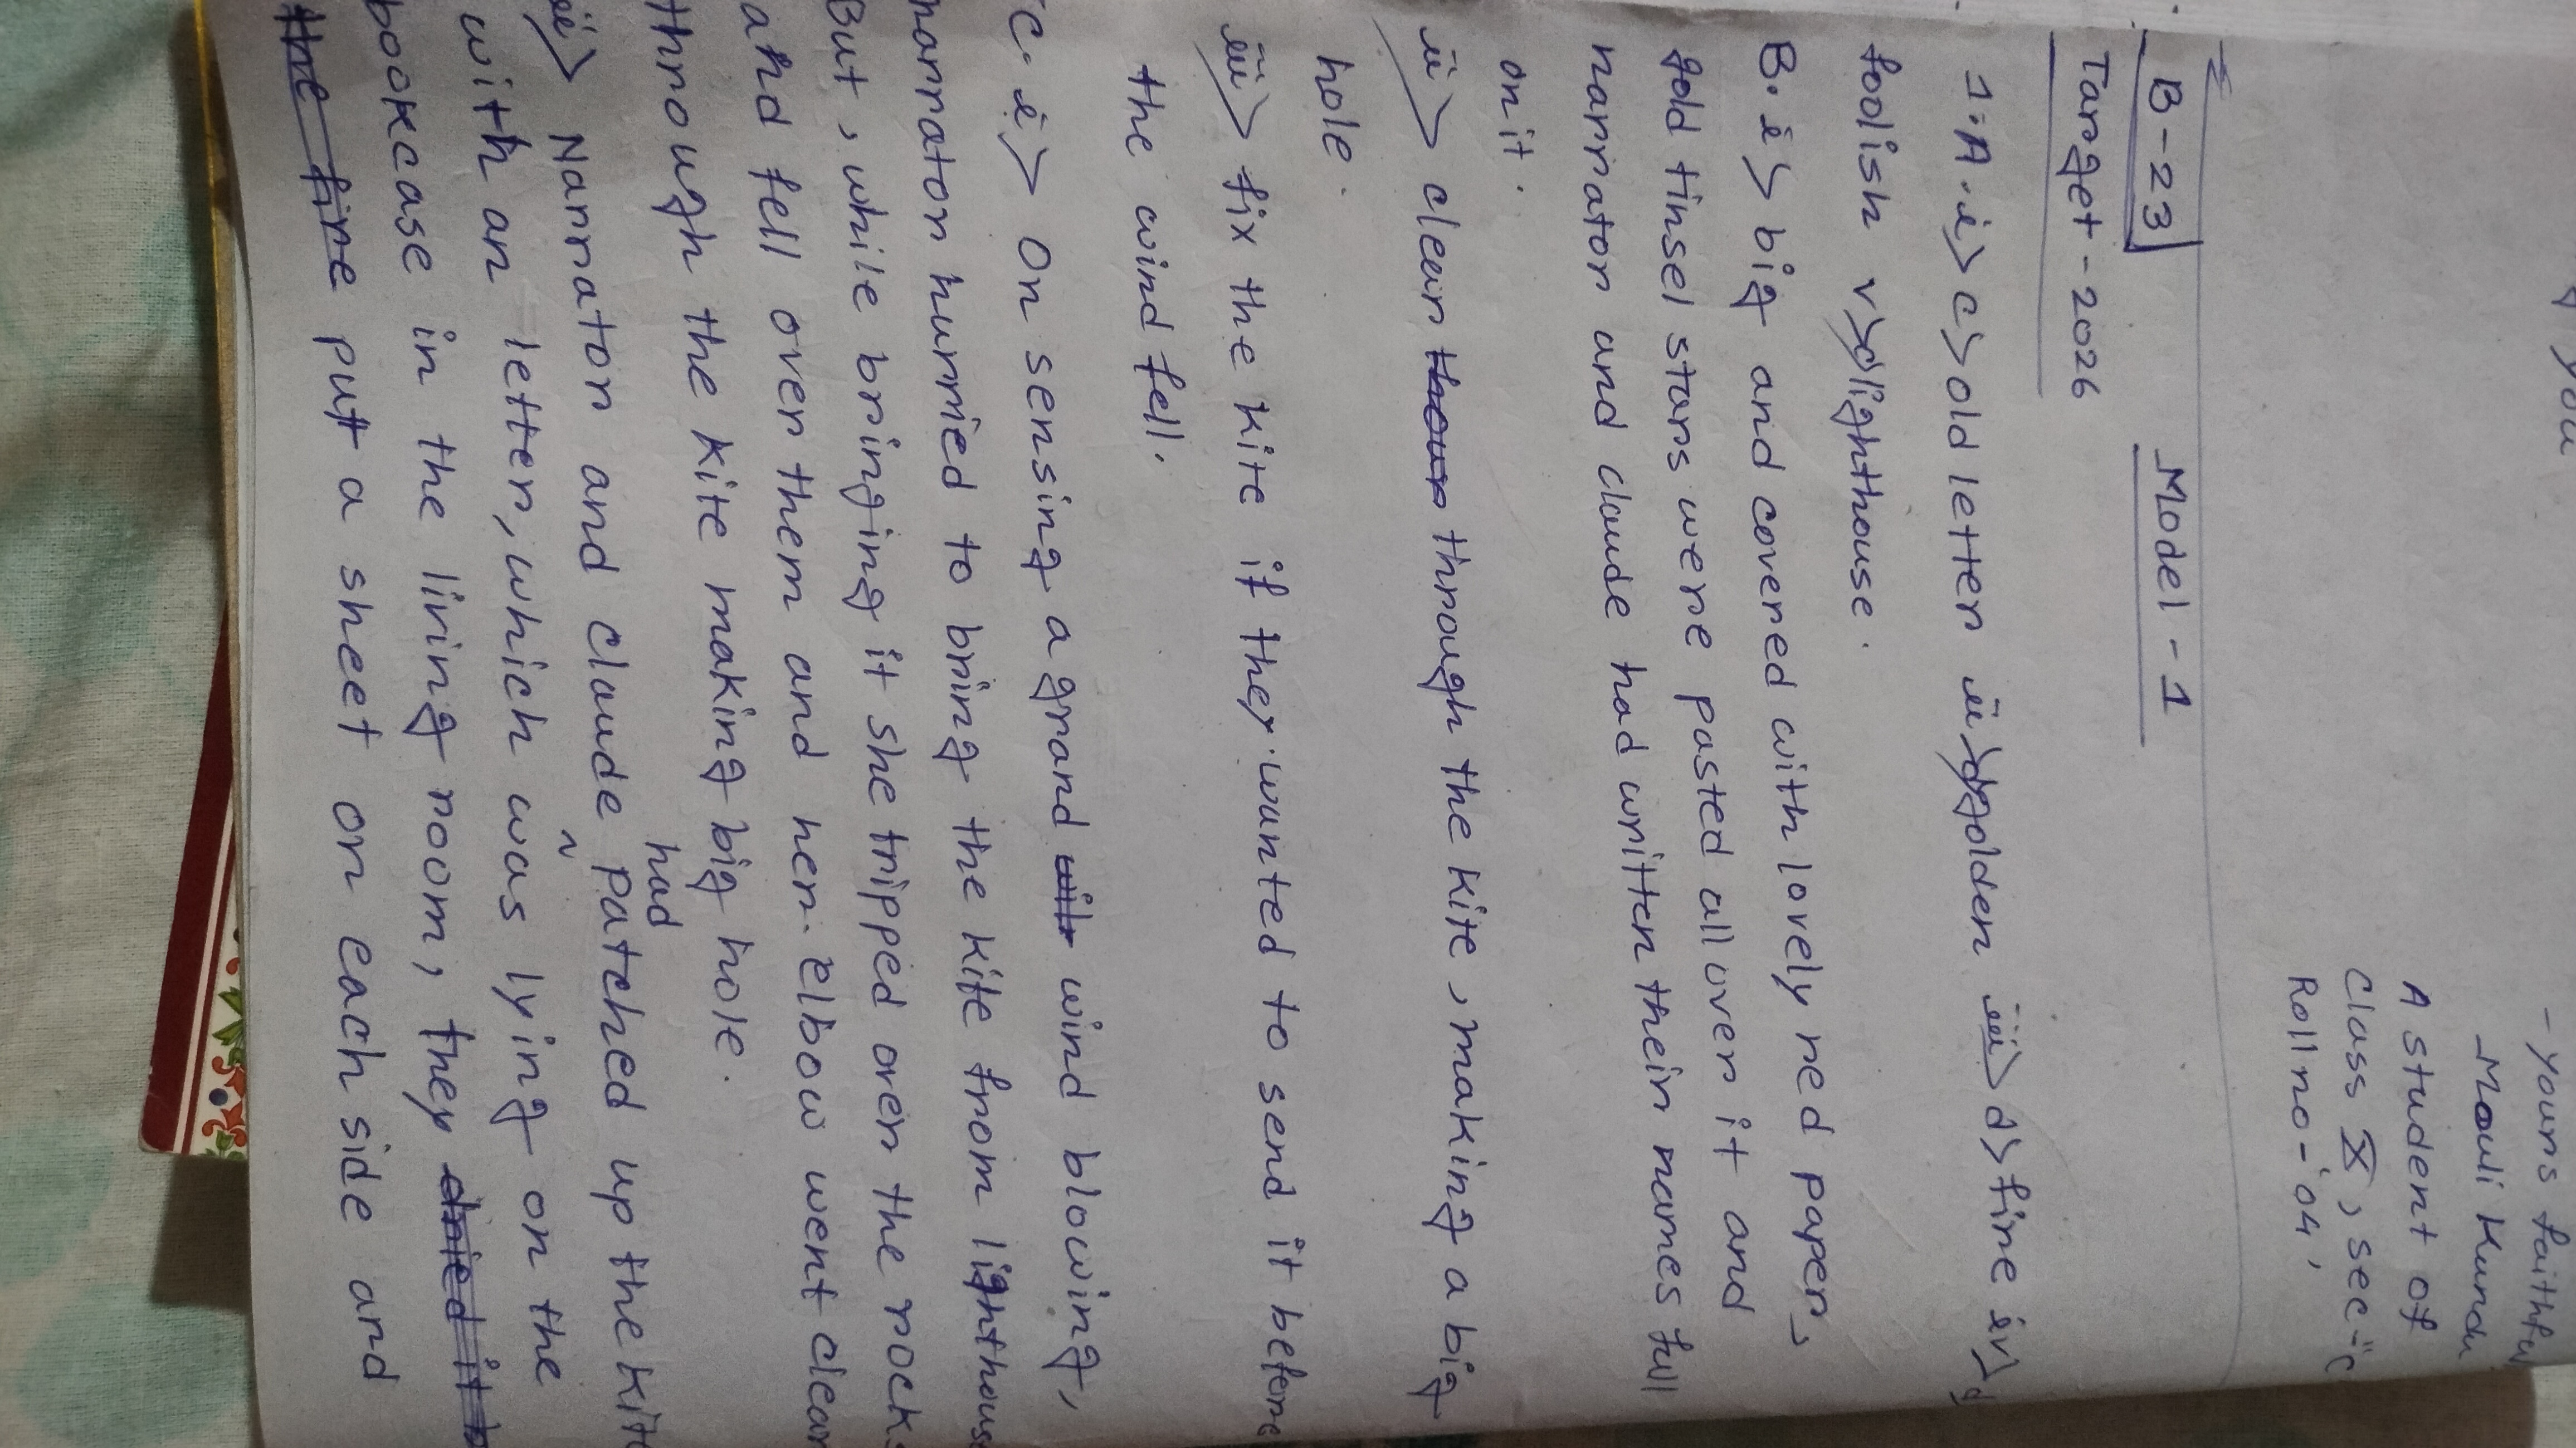 you
- Yours faithfu
Mouli Kundu
A student of
Class X, sec-"c
Roll no-'04'
B-23
Model-1
Target-2026
1.A.i> c> old letter ii> d> golden iii> d> fine iv>
foolish v> d> lighthouse.
B.i> big and covered with lovely red paper,
gold tinsel stars were pasted all over it and
narrator and claude had written their names full
on it.
ii> clean through the kite, making a big
hole.
iii> fix the kite if they wanted to send it before
the wind fell.
C.i> On sensing a grand wind blowing,
narrator hurried to bring the kite from lighthouse
But, while bringing it she tripped over the rocks
and fell over them and her elbow went clean
through the kite making big hole.
ii> Narrator and claude had patched up the kite
with an letter, which was lying on the
bookcase in the living room, they dried it b
the fire put a sheet on each side and